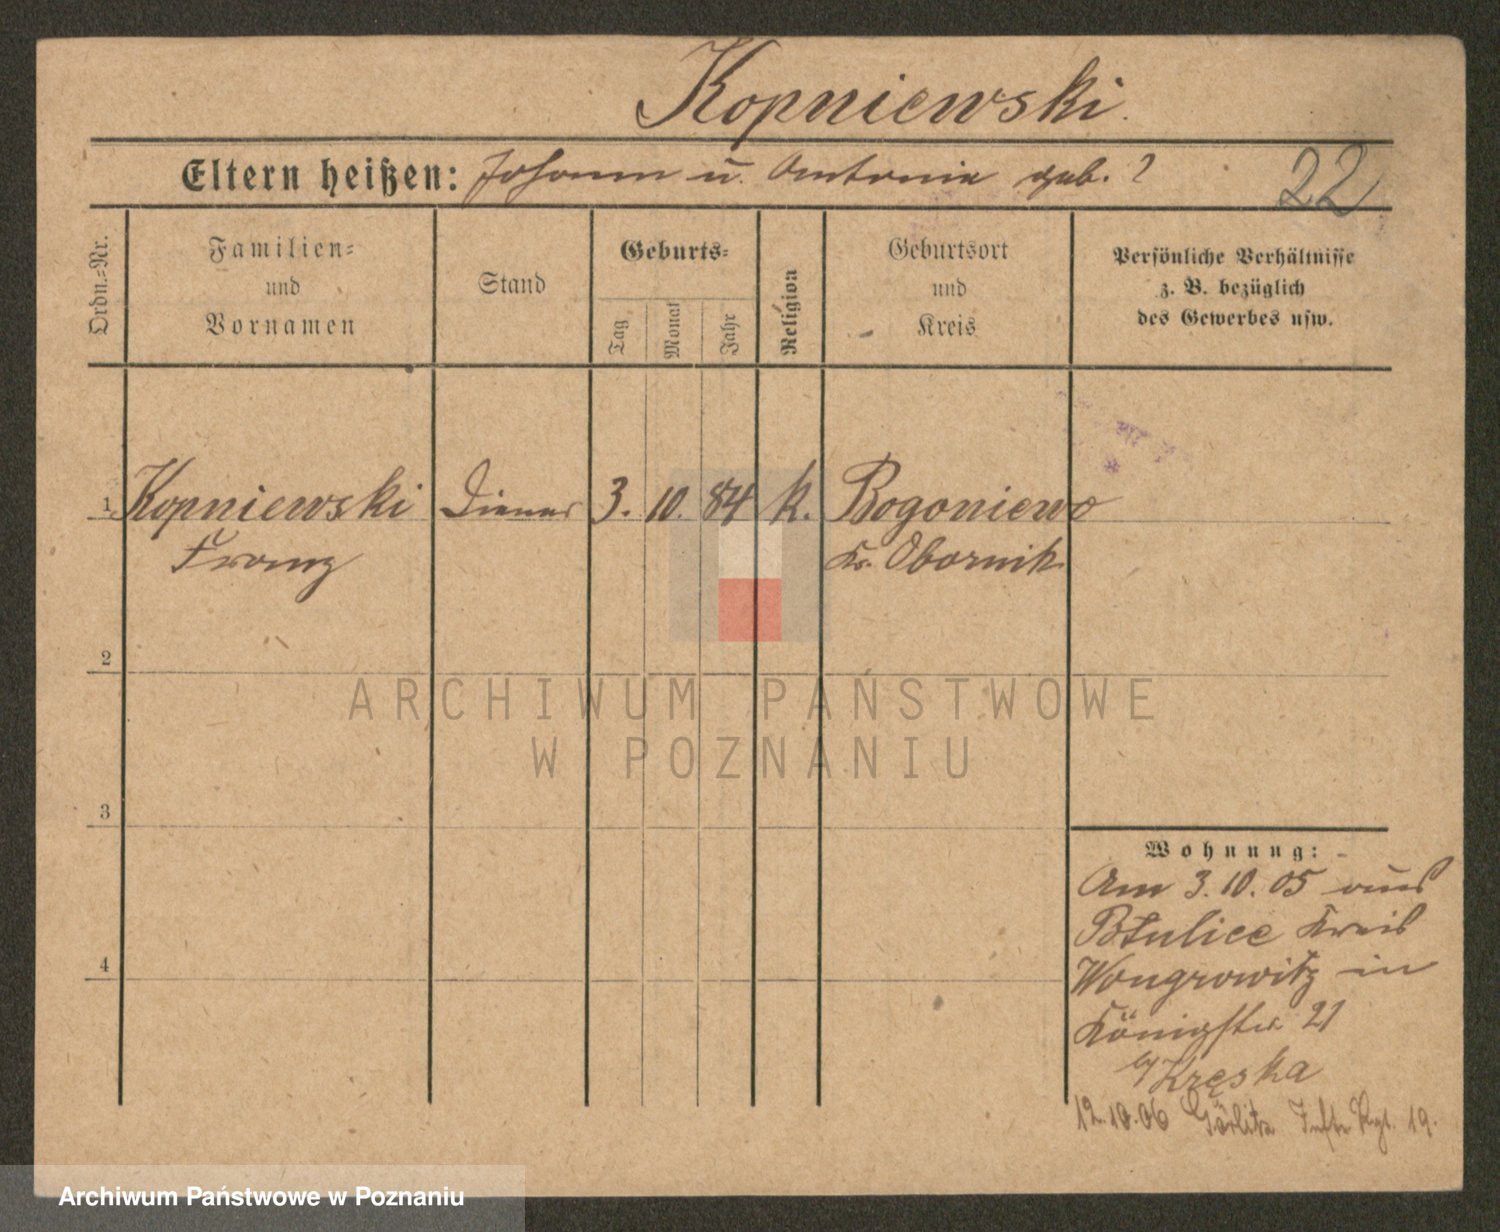 Kopniewski.
Eltern heißen: Johann u. Antonie geb. ?
22
Ordn.=Nr.
Familien=
und
Vornamen
Stand
Geburts=
Tag
Monat
Jahr
Religion
Geburtsort
und
Kreis
Persönliche Verhältnisse
z. B. bezüglich
des Gewerbes usw.
1 Kopniewski Diener 3. 10. 84 k. Bogoniewo
Franz Kr. Obornik
2
3
4
Wohnung:
Am 3.10.05 aus
Kreis
Wongrowitz in
Königstr 21
b/ Kręska
12.10.06 Görlitz Inftr Rgt. 19.
ARCHIWUM PAŃSTWOWE
W POZNANIU
Archiwum Państwowe w Poznaniu